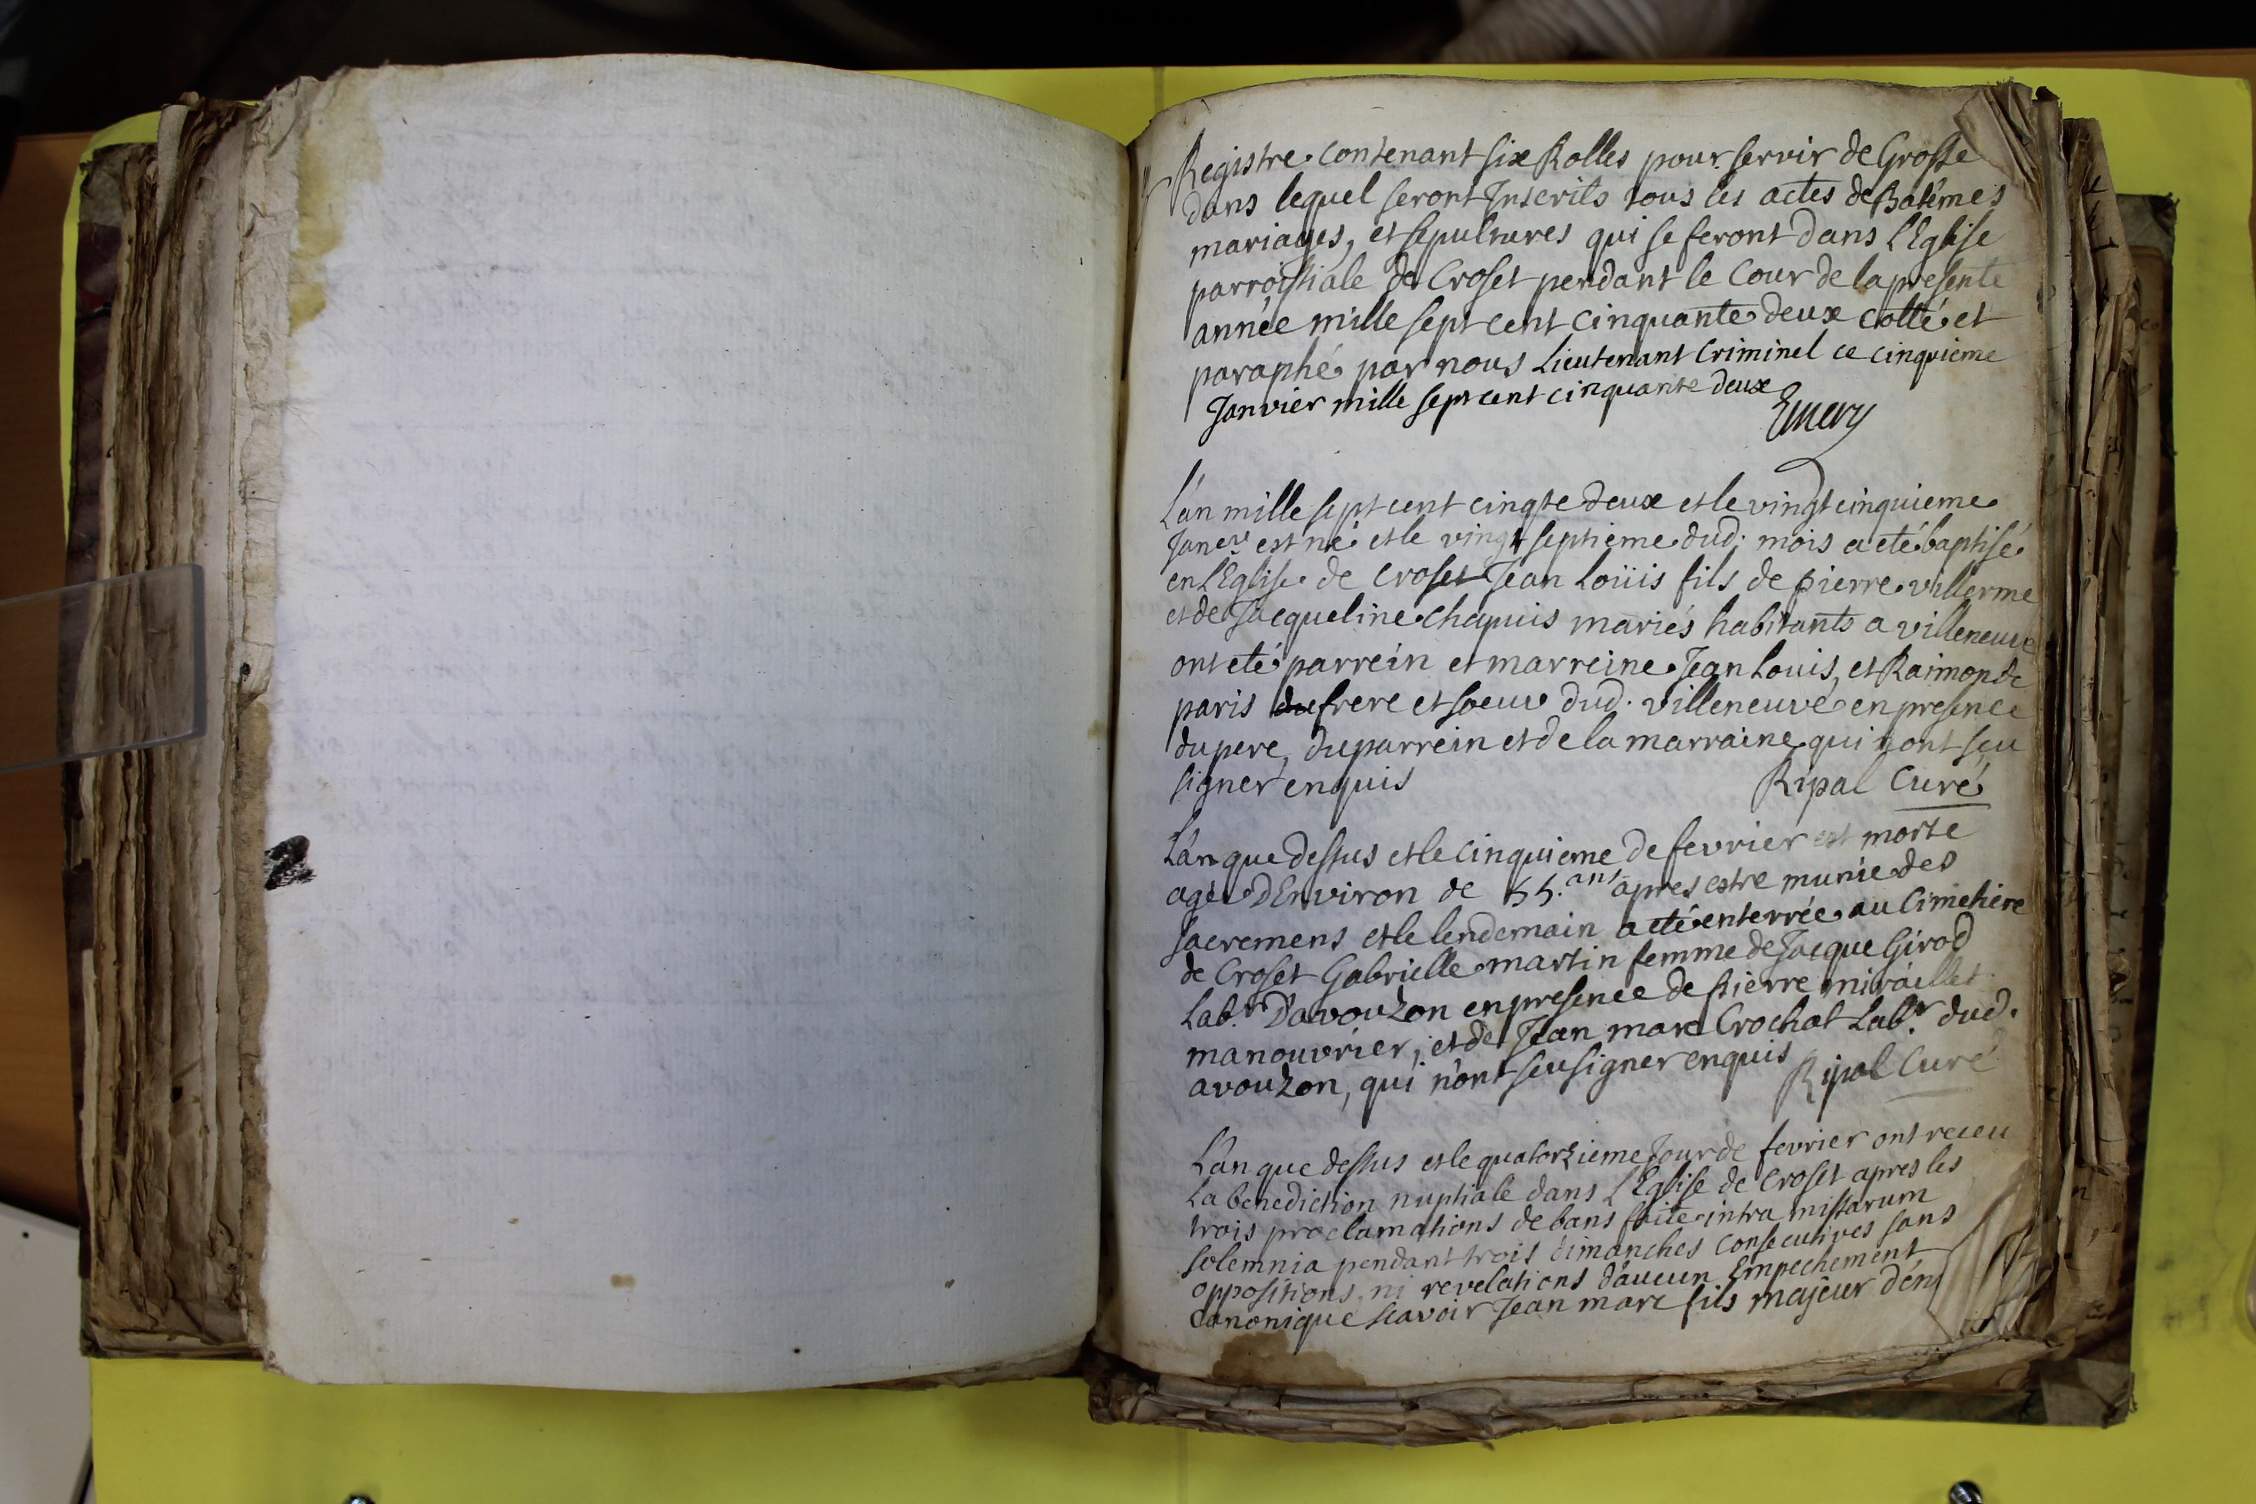 Registre contenant six Rolles pour servir de Grosse
dans lequel seront Inscrits tous les actes de Batêmes
mariages, et sepultures qui se feront dans l'Eglise
parroissiale de Croset pendant le Cour de la presente
année mille sept cent cinquante deux cotté et
paraphé par nous Lieutenant Criminel ce cinquieme
Janvier mille sept cent cinquante deux
Emery
L'an mille sept cent cinqte deux et le vingt cinquieme
Janer est né et le vingt septieme dud. mois a eté baptisé
en l'Eglise de Croset Jean Loüis fils de pierre villerme
et de Jacqueline Chapuis mariés habitants a villeneuve
ont eté parrein et marreine Jean Louis, et Raimonde
paris du frere et soeur dud. villeneuve en presence
du pere, du parrein et de la marraine qui n'ont seu
signer enquis Ripal Curé
L'an que dessus et le cinquieme de fevrier est morte
agée D'Environ de 55. ans apres estre munie des
sacremens et le lendemain a eté enterrée au Cimetiere
de Croset Gabrielle martin femme de Jacque Girod
Labr. D'avouzon en presence de pierre miraillet
manouvrier, et de Jean marc Crochat Labr. dud.
avouzon, qui n'ont seu signer enquis Ripal Curé
L'an que dessus et le quatorzieme Jour de fevrier ont receu
La benediction nuptiale dans l'Eglise de Croset apres les
trois proclamations de bans faite intra missarum
solemnia pendant trois dimanches consecutives sans
oppositions, ni revelations d'aucun Empechement
canonique scavoir Jean marc fils majeur d'én